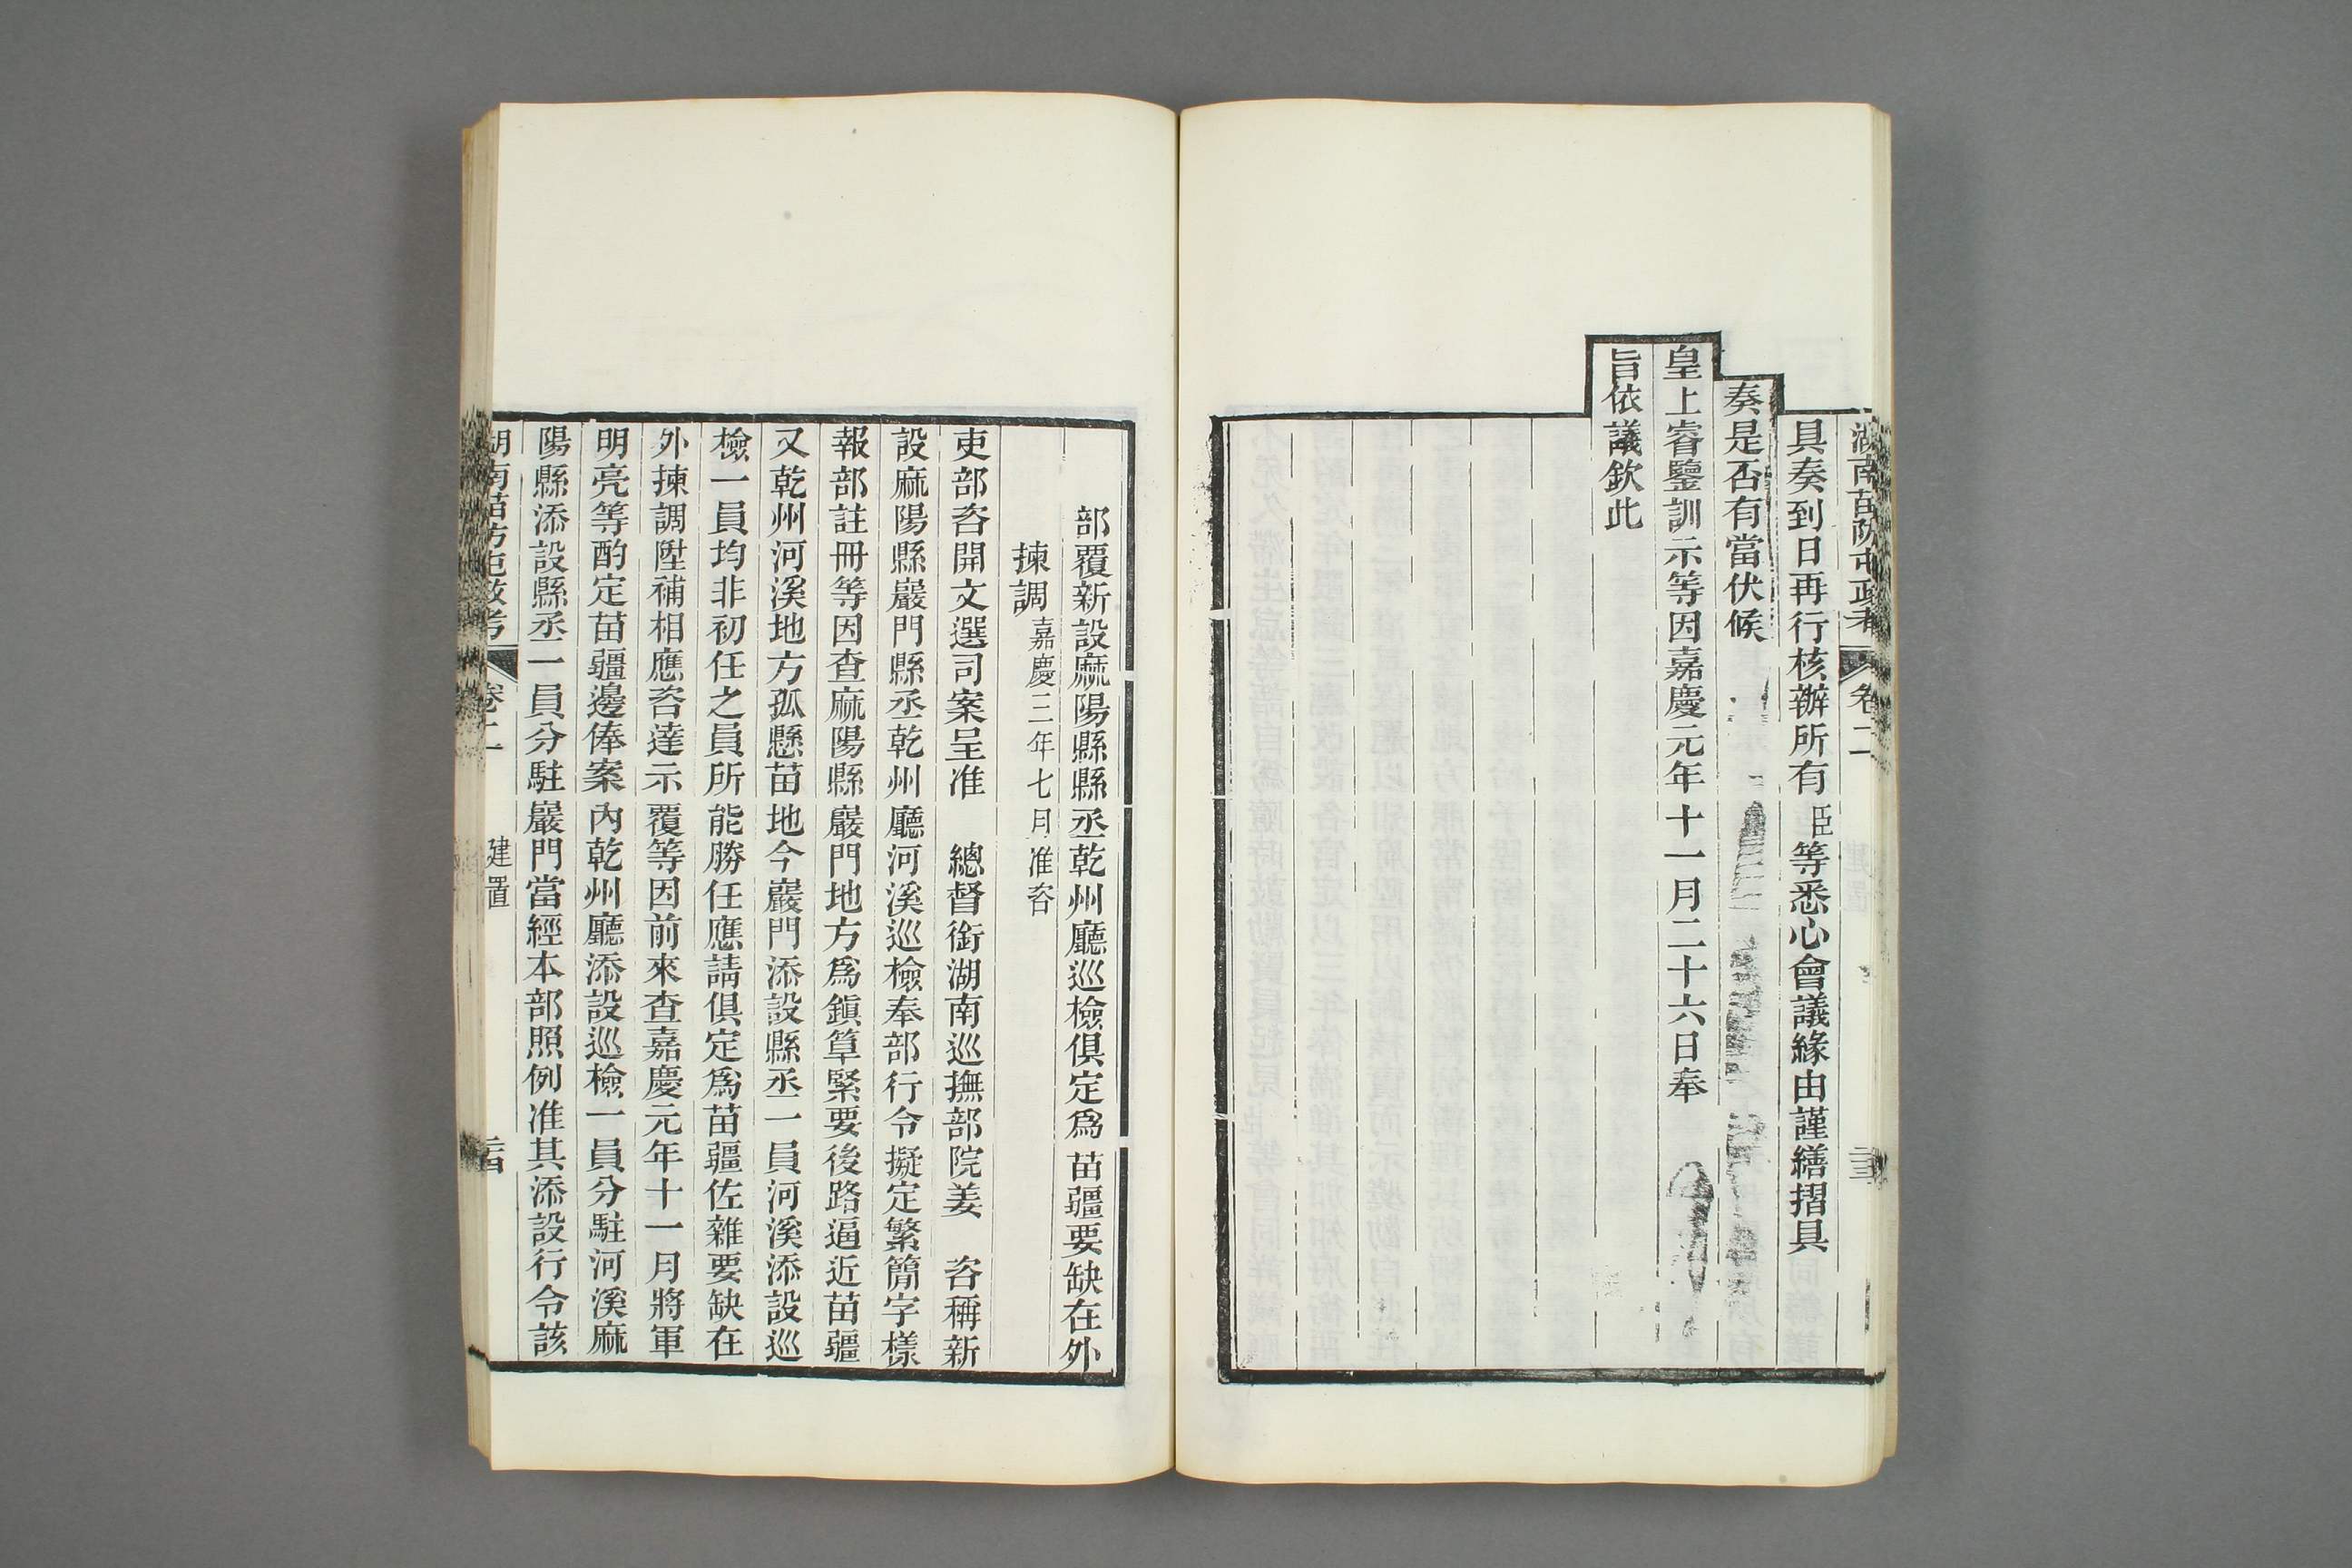 湖南苗防屯政考 卷二 二十三
具奏到日再行核辦所有臣等悉心會議緣由謹繕摺具
奏是否有當伏候
皇上睿鑒訓示等因嘉慶元年十一月二十六日奉
旨依議欽此
部覆新設麻陽縣縣丞乾州廳巡檢俱定爲苗疆要缺在外
揀調嘉慶三年七月准咨
吏部咨開文選司案呈准 總督銜湖南巡撫部院姜 咨稱新
設麻陽縣巖門縣丞乾州廳河溪巡檢奉部行令擬定繁簡字樣
報部註冊等因查麻陽縣巖門地方爲鎭筸緊要後路逼近苗疆
又乾州河溪地方孤懸苗地今巖門添設縣丞一員河溪添設巡
檢一員均非初任之員所能勝任應請俱定爲苗疆佐雜要缺在
外揀調陞補相應咨達示覆等因前來查嘉慶元年十一月將軍
明亮等酌定苗疆邊俸案內乾州廳添設巡檢一員分駐河溪麻
陽縣添設縣丞一員分駐巖門當經本部照例准其添設行令該
湖南苗防屯政考 卷二 建置 二十四